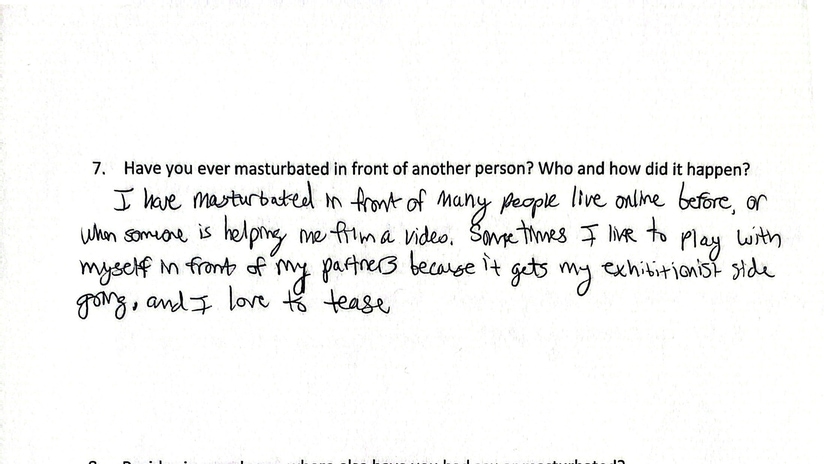 7. Have you ever masturbated in front of another person? Who and how did it happen?
I have masturbated in front of many people live online before, or
when someone is helping me film a video. Sometimes I like to play with
myself in front of my partners because it gets my exhibitionist side
going, and I love to tease